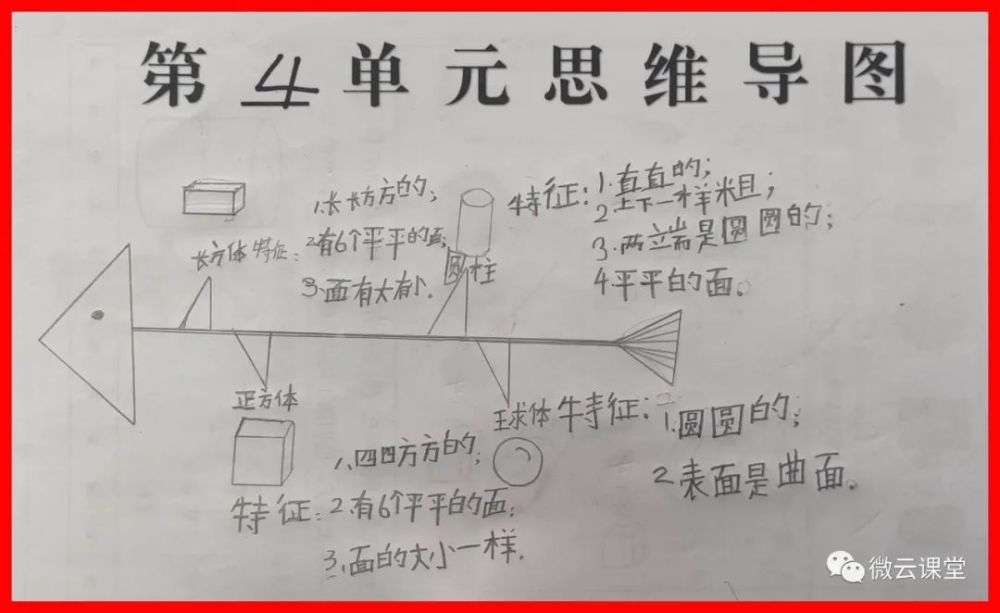 第4单元思维导图
长方体特征:
1.长长方方的;
2.有6个平平的面;
3.面有大有小.
圆柱
特征:1.直直的;
2.上下一样粗;
3.两端是圆圆的;
4.平平的面。
正方体
特征:
1.四四方方的;
2.有6个平平的面;
3.面的大小一样.
球体特征:
1.圆圆的;
2.表面是曲面。
微云课堂